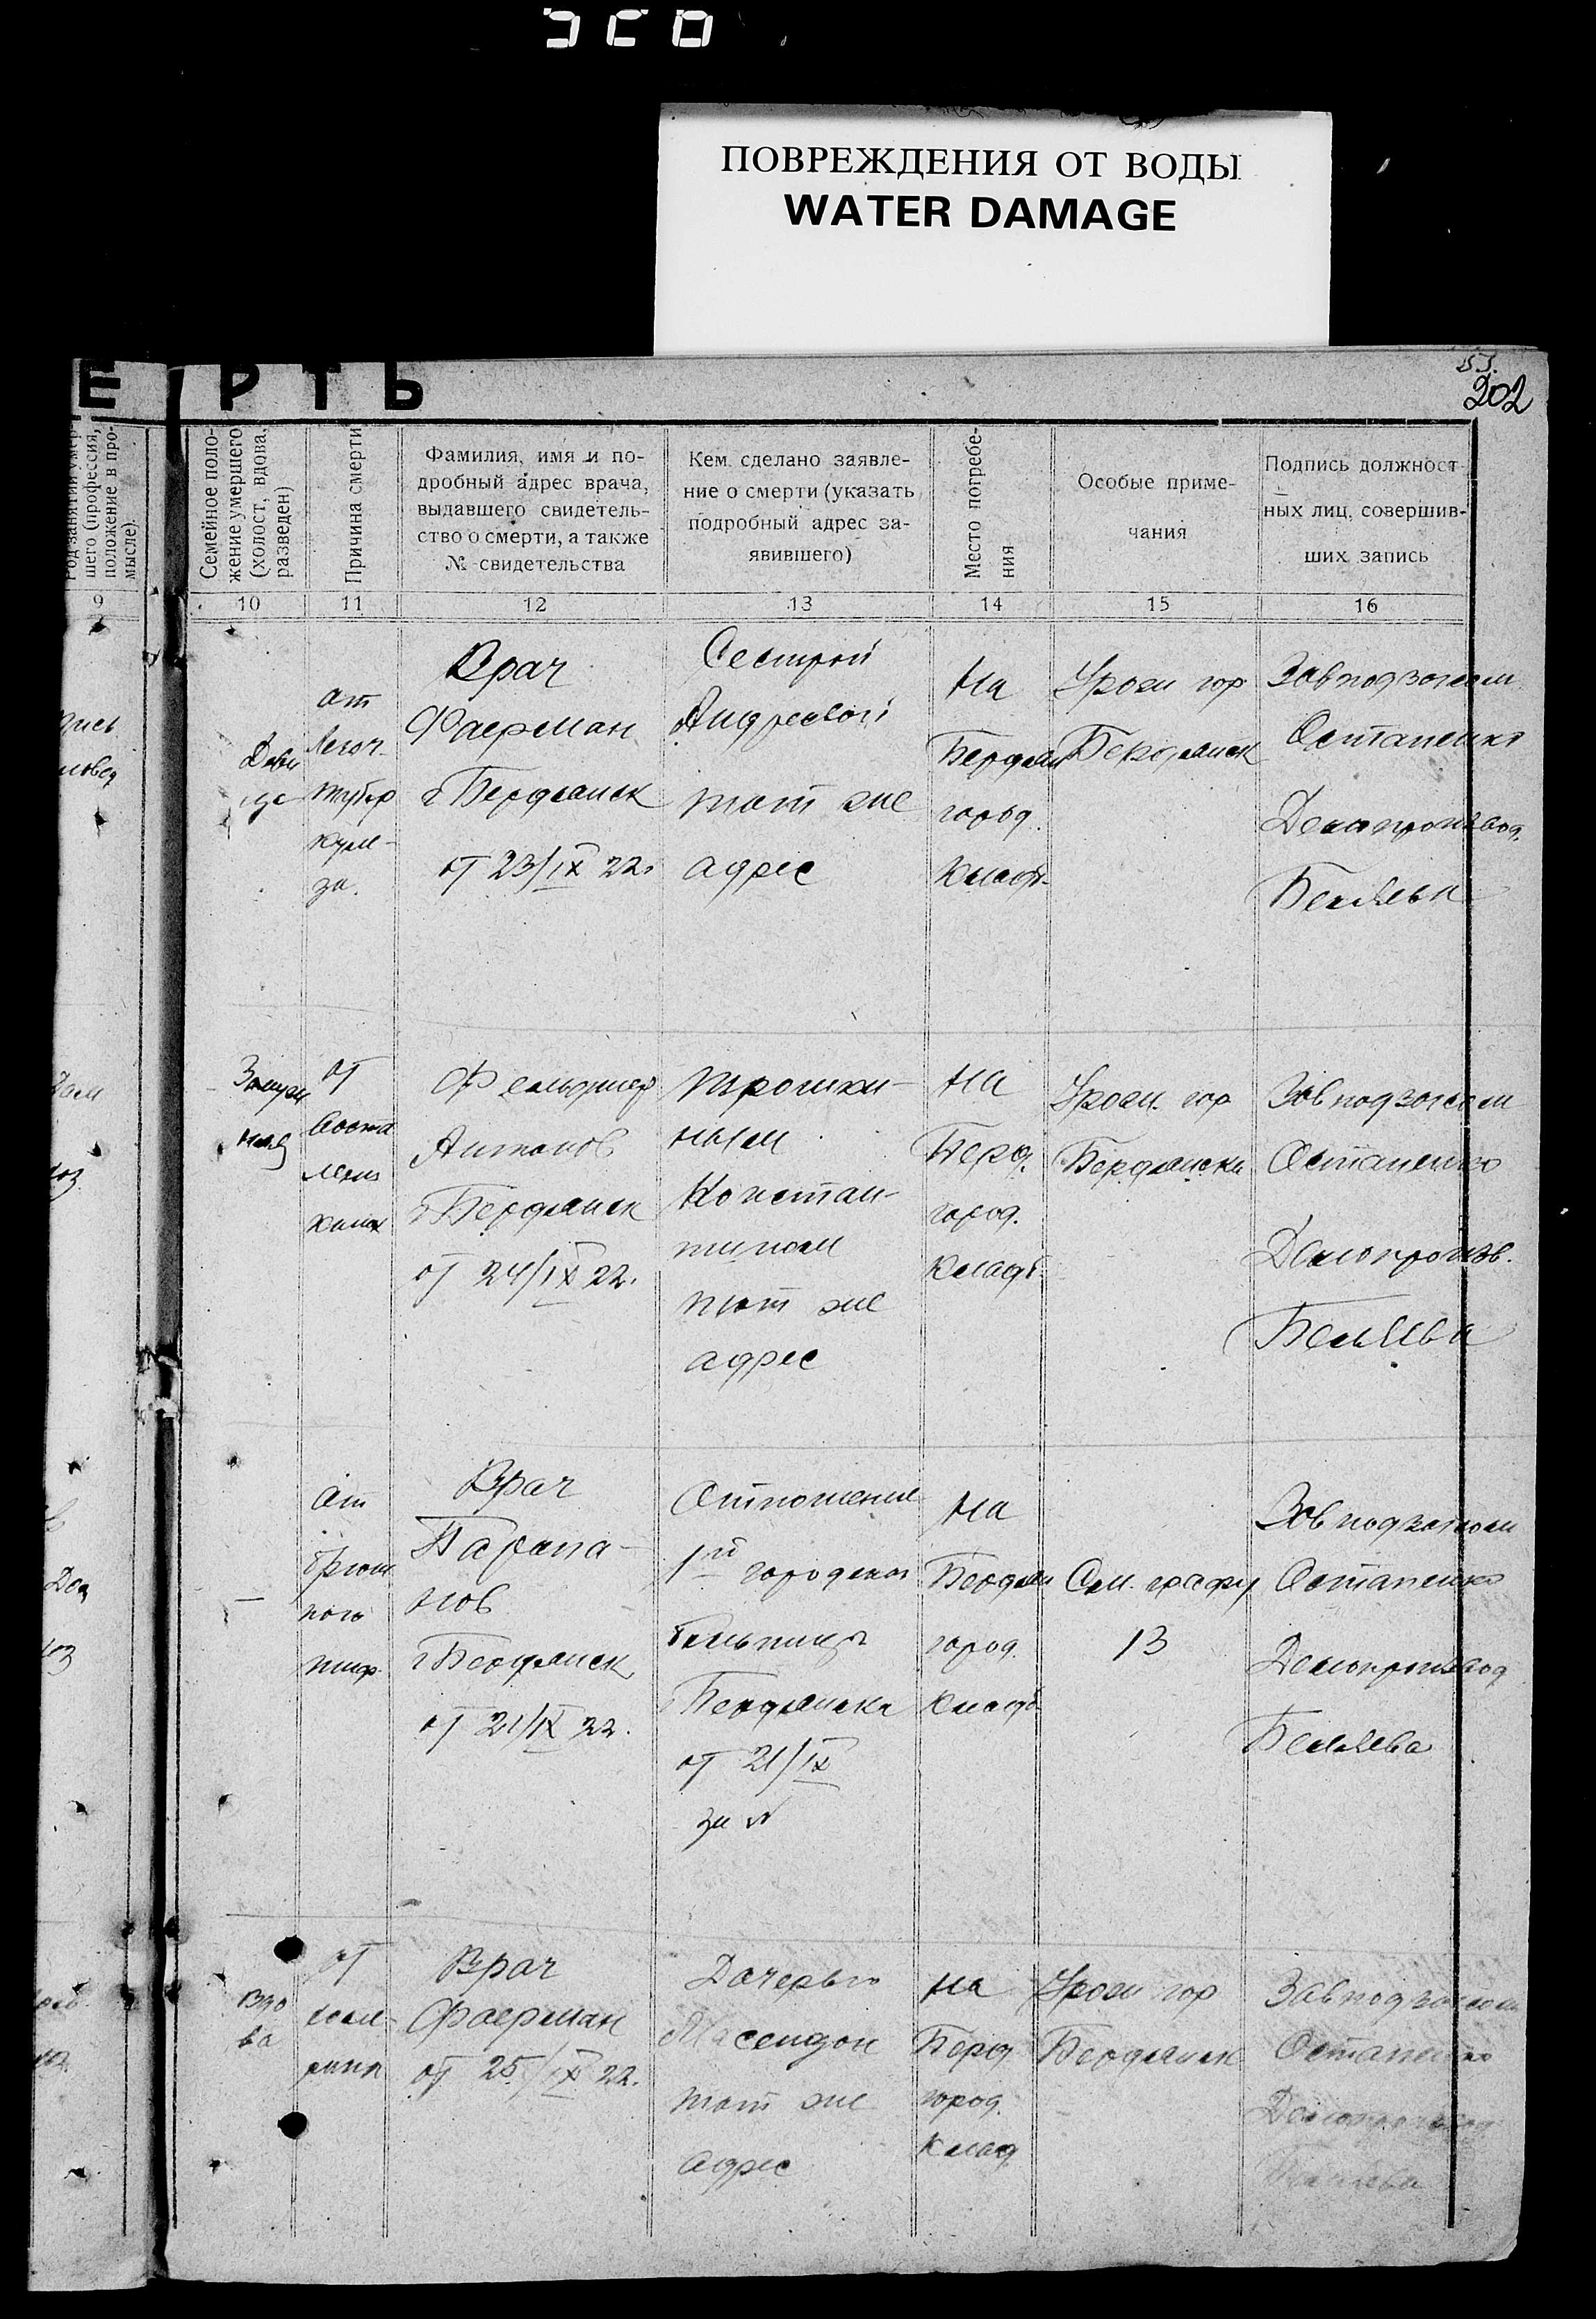 ПОВРЕЖДЕНИЯ ОТ ВОДЫ
WATER DAMAGE
Е РТЬ
202
Род занятий умер-
шего (профессия,
положение в про-
мысле)
Семейное поло-
жение умершего
(холост, вдова,
разведен)
Причина смерти
Фамилия, имя и по-
дробный адрес врача,
выдавшего свидетель-
ство о смерти, а также
№ свидетельства
Кем сделано заявле-
ние о смерти (указать
подробный адрес за-
явившего)
Место погребе-
ния
Особые приме-
чания
Подпись должност-
ных лиц, совершив-
ших запись
9
10
11
12
13
14
15
16
Деви
це
от
легоч
тубер
куле-
за.
Врач
Фаерман
г Бердянск
от 23/IX 22.
Сестрой
Андреевой
тот же
адрес
На
Бердян
город.
Кладб.
Урож гор
Бердянск
Завподзагсом
Остапенко
Делопроизвод.
Беляева
Замуж
няя
от
Воспа
легких
Фельдшер
Антонов
г Бердянск
от 24/IX 22.
Трошки-
ным
Констан-
тином
тот же
адрес
На
Берд.
город.
Кладб.
Урож. гор
Бердянска
Завподзагсом
Остапенко
Делопроизв.
Беляева
От
брюш
ного
тиф.
Врач
Тарана-
нов
г Бердянск
от 21/IX 22.
Отношение
1й городской
больницы
Бердянска
от 21/IX
за №
На
Бердян
город.
кладб
См. графу
13
Завподзагсом
Остапенко
Делопроизвод
Беляева
Вдо
ва
от
Врач
Фаерман
от 25/IX 22.
Дочерью
тот же
адрес
На
Берд
город.
клад.
Урож гор
Бердянск
Завподзагсом
Остапенко
Делопроизвод
Беляева